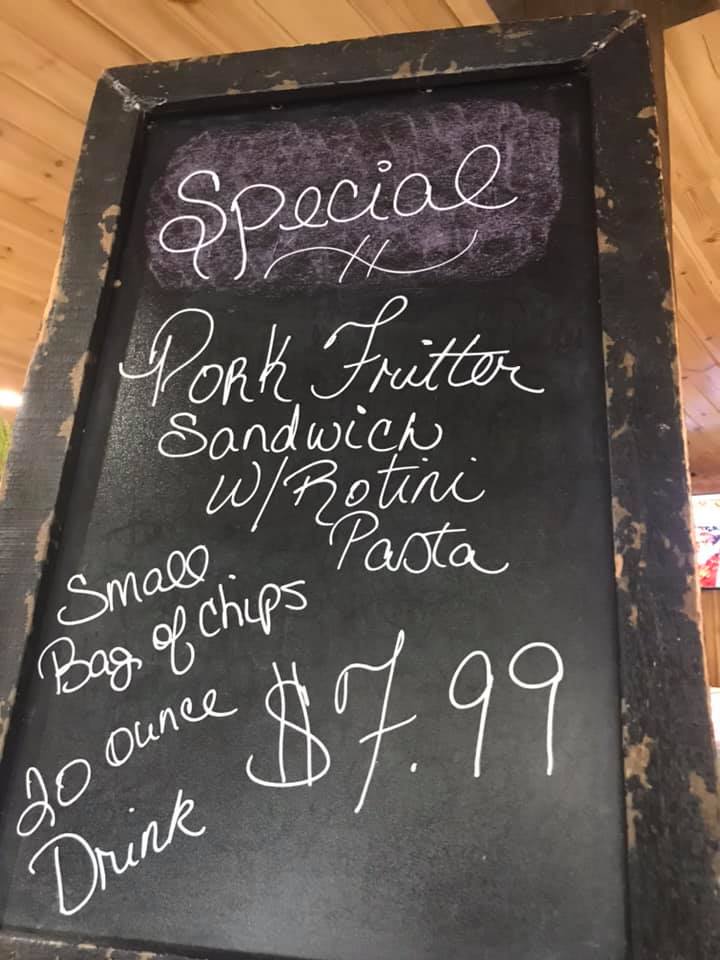 Special
Pork Fritter
Sandwich
W/Rotini
Pasta
Small
Bag of chips
20 ounce
Drink
$7.99